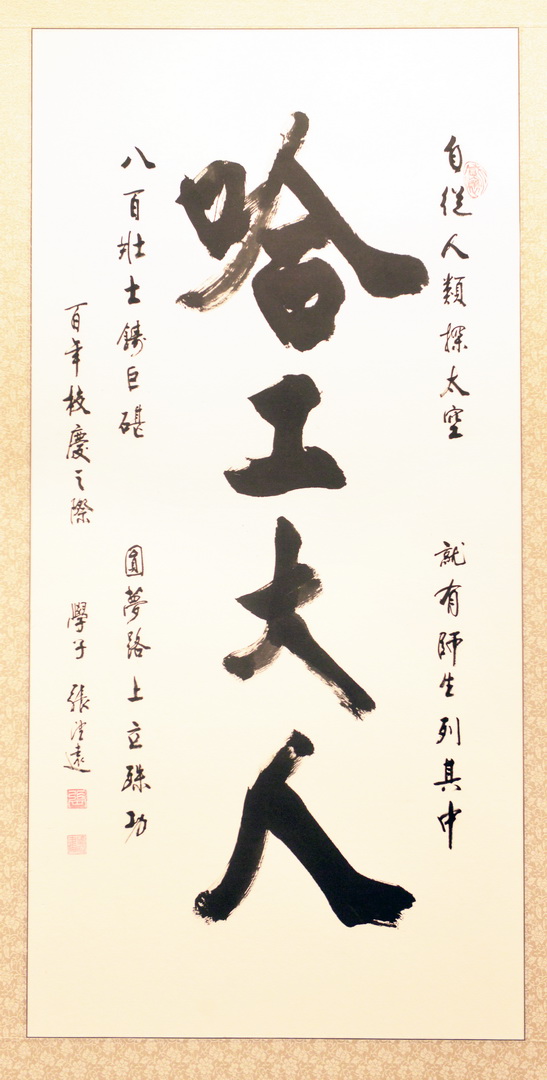 自從人類探太空 就有師生列其中
哈工大人
八百壯士鑄巨碪 圓夢路上立殊功
百年校慶之際 學子 張遠